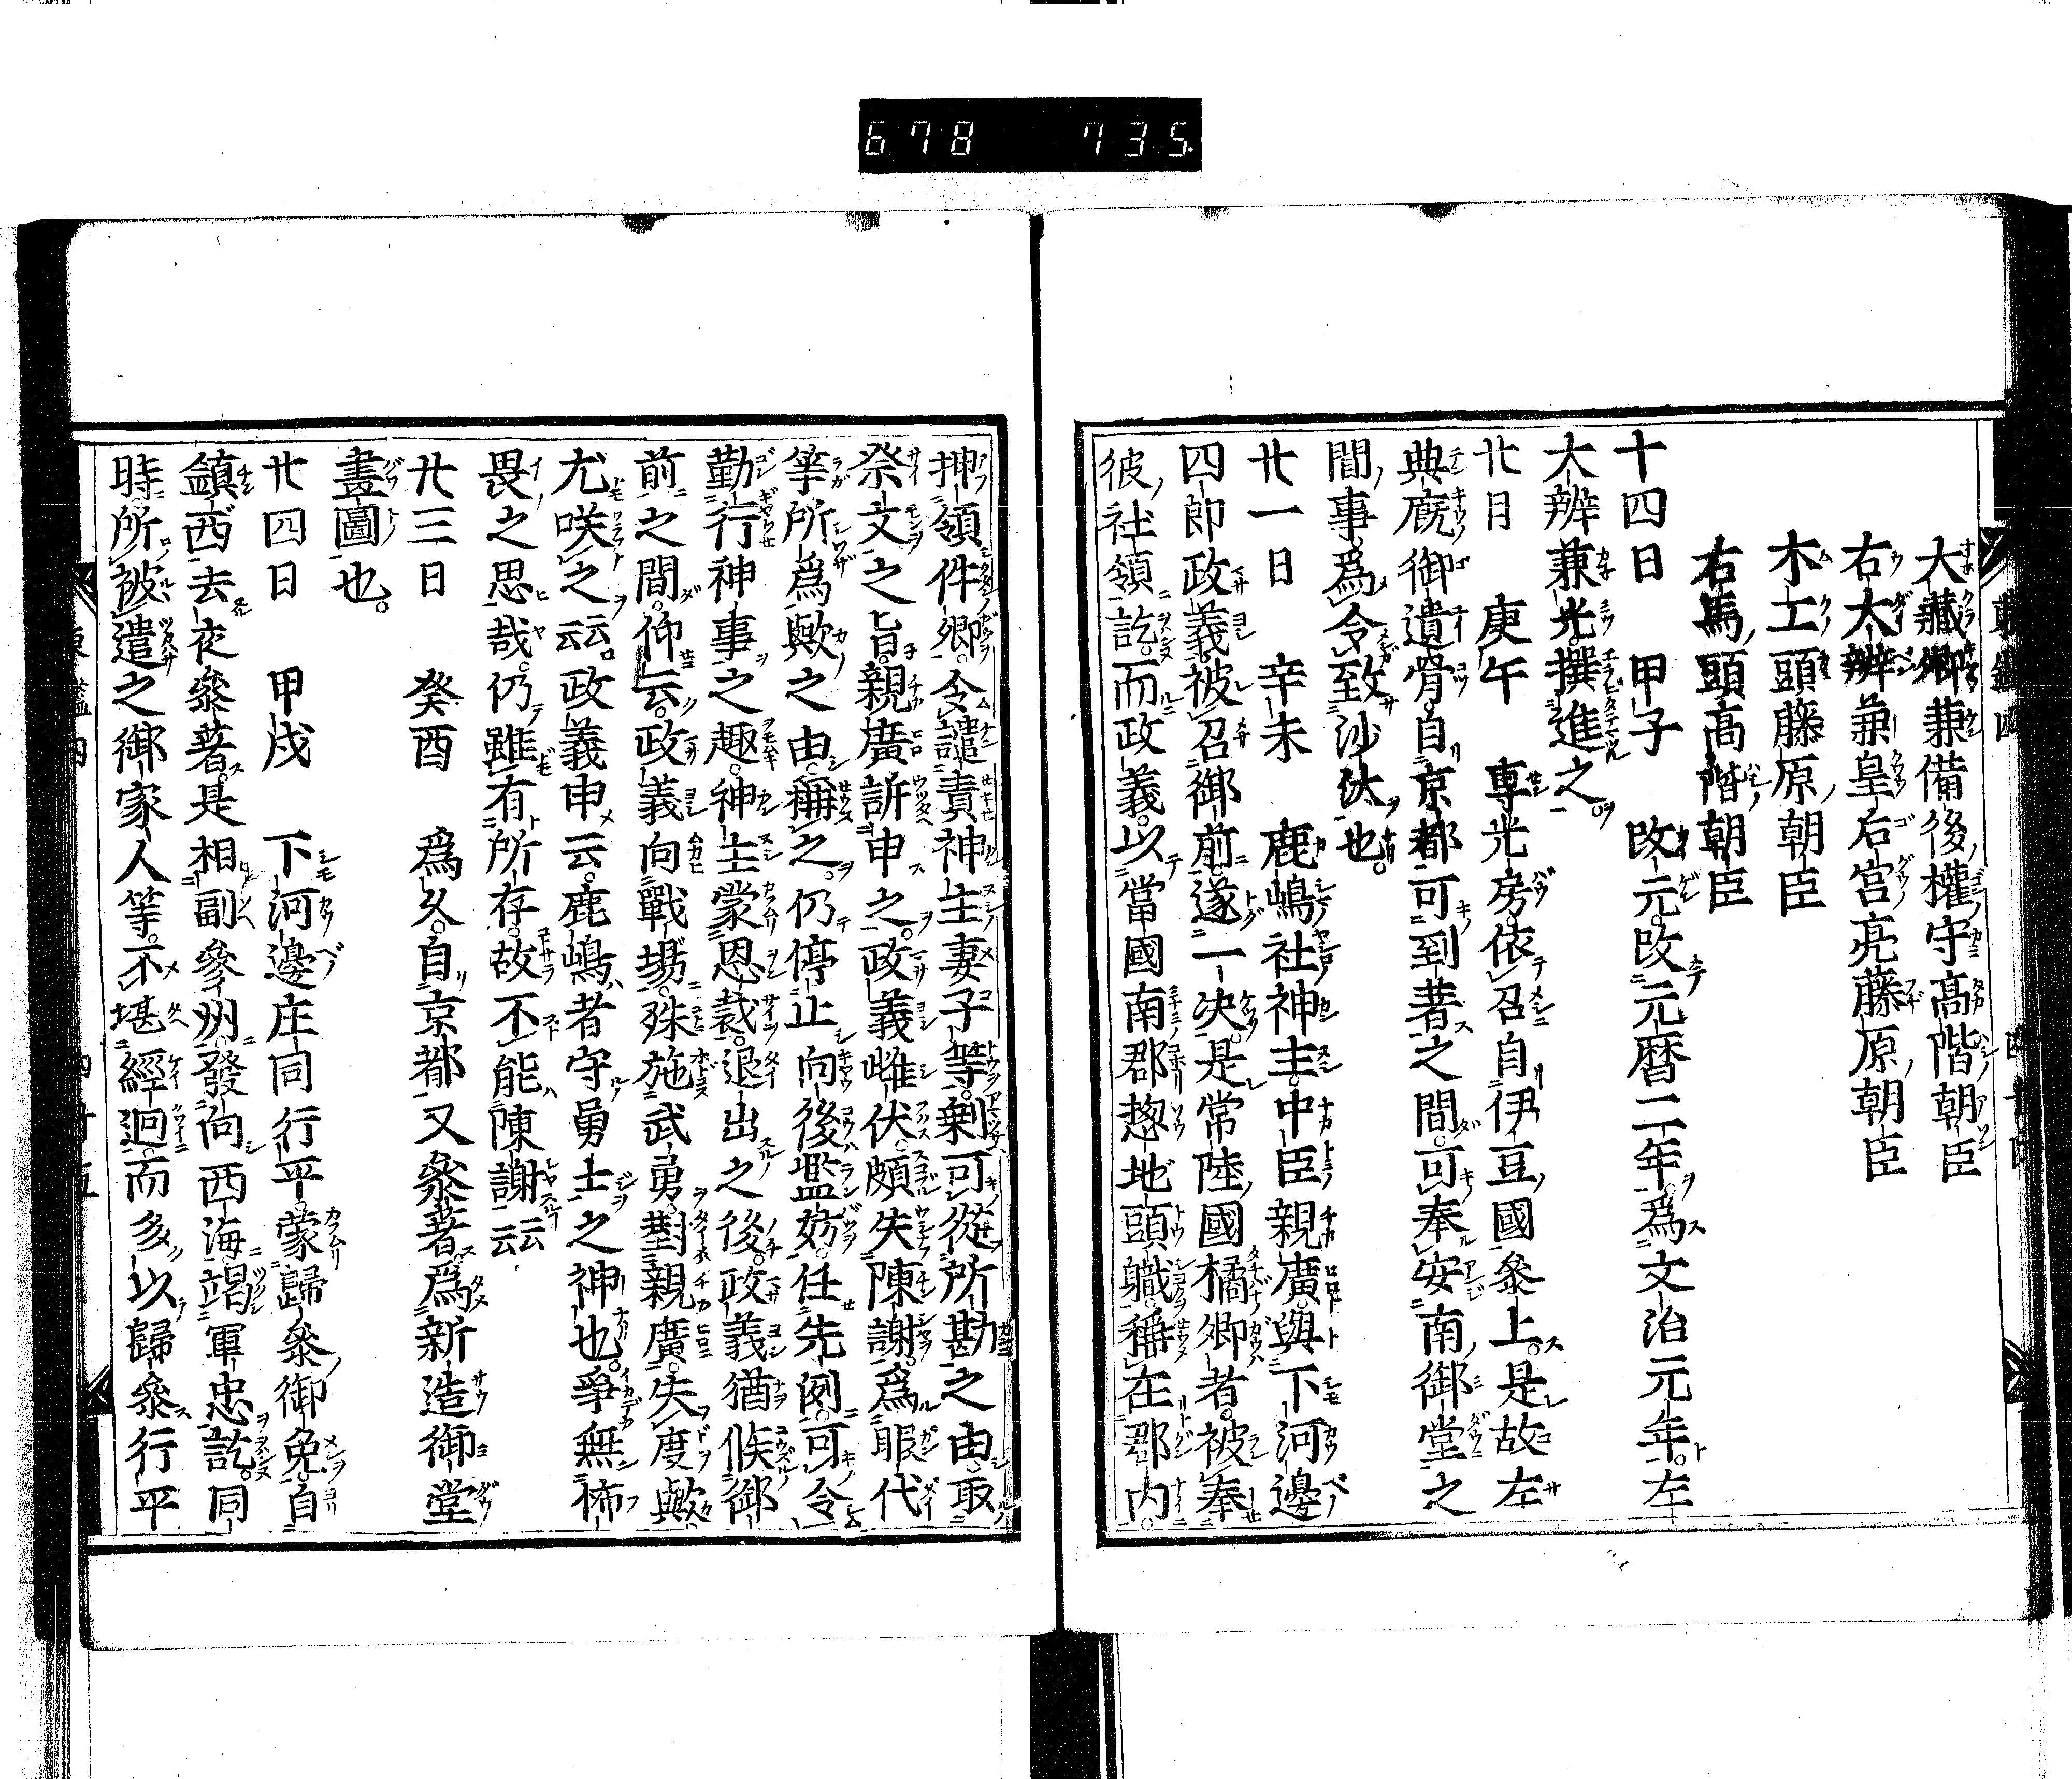 678 735
大藏卿兼備後權守高階朝臣
右大辨兼皇后宮亮藤原朝臣
木工頭藤原朝臣
右馬頭高階朝臣
十四日 甲子 改元。改元暦二年。爲文治元年。左
大辨兼光撰進之。
廿日 庚午 專光房。依召自伊豆國參上。是故左
典廐御遺骨。自京都可到著之間。可奉安南御堂之
間事。爲令致沙汰也。
廿一日 辛未 鹿嶋社神主。中臣親廣。與下河邊
四郎政義。被召御前。遂一决。是常陸國橘郷者。被奉
彼社領訖。而政義。以當國南郡惣地頭職。稱在郡内。
押領件郷。令譴責神主妻子等。剩可從所勘之由。取
祭文之旨。親廣訴申之。政義雌伏。頗失陳謝。爲眼代
等所爲歟之由。稱之。仍停止向後濫妨。任先例。可令
勤行神事之趣。神主蒙恩裁。退出之後。政義猶候御
前之間。仰云。政義向戰場。殊施武勇。對親廣。失度歟。
尤咲之云云政義申云。鹿嶋者守勇士之神也。爭無怖
畏之思哉。仍雖有所存。故不能陳謝云云
廿三日 癸酉 爲久。自京都又參著。爲新造御堂
畫圖也。
廿四日 甲戌 下河邊庄司行平。蒙歸參御免。自
鎮西去夜參著。是相副參州。發向西海。竭軍忠訖。同
時所被遣之御家人等。不堪經迴。而多以歸參。行平